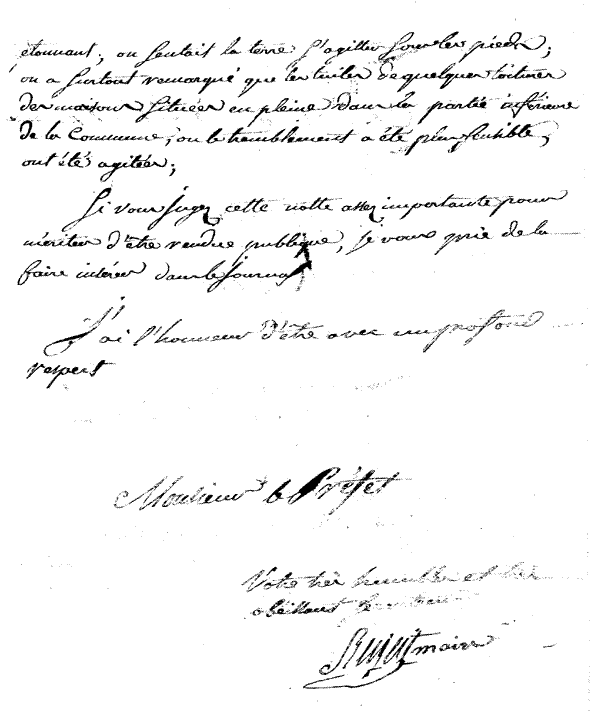 étonnant, on sentait la terre s'agitter sous les pieds;
on a surtout remarqué que les tuiles de quelques toitures
des maisons situées en pleine dans la partie inférieure
de la Commune, ou le tremblement a été plus sensible,
ont été agitées;
Si vous jugez cette notte assez importante pour
mériter d'être rendue publique, je vous prie de la
faire insérer dans le journal
J'ai l'honneur d'être avec un profond
respect
Monsieur le Préfet
Votre très humble et très
obéissant serviteur
maire